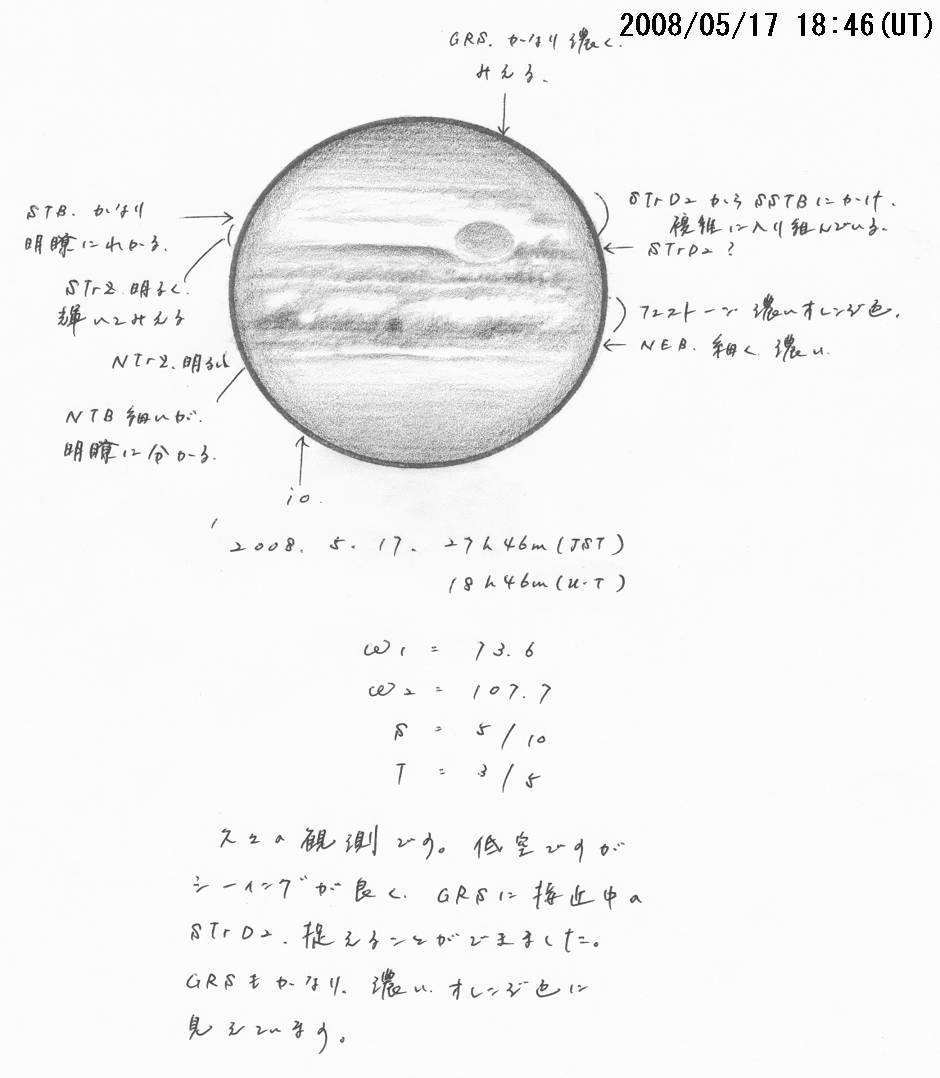 2008/05/17 18:46(UT)
GRS. かなり濃く.
みえる.
STB. かなり
明瞭にわかる.
STrZ. 明るく.
輝いてみえる
NTrZ. 明るい
NTB 細いが.
明瞭に分かる.
io.
STrD2 から SSTBにかけ.
複雑に入り組んでいる.
STrD2 ?
フェストーン 濃いオレンジ色.
NEB. 細く 濃い.
2008. 5. 17. 27h46m(JST)
18h46m(U.T)
ω1 = 73.6
ω2 = 107.7
S = 5/10
T = 3/5
久々の観測です。低空ですが
シーイングが良く. GRSに接近中の
STrD2. 捉えることができました。
GRSもかなり. 濃い. オレンジ色に
見えています。